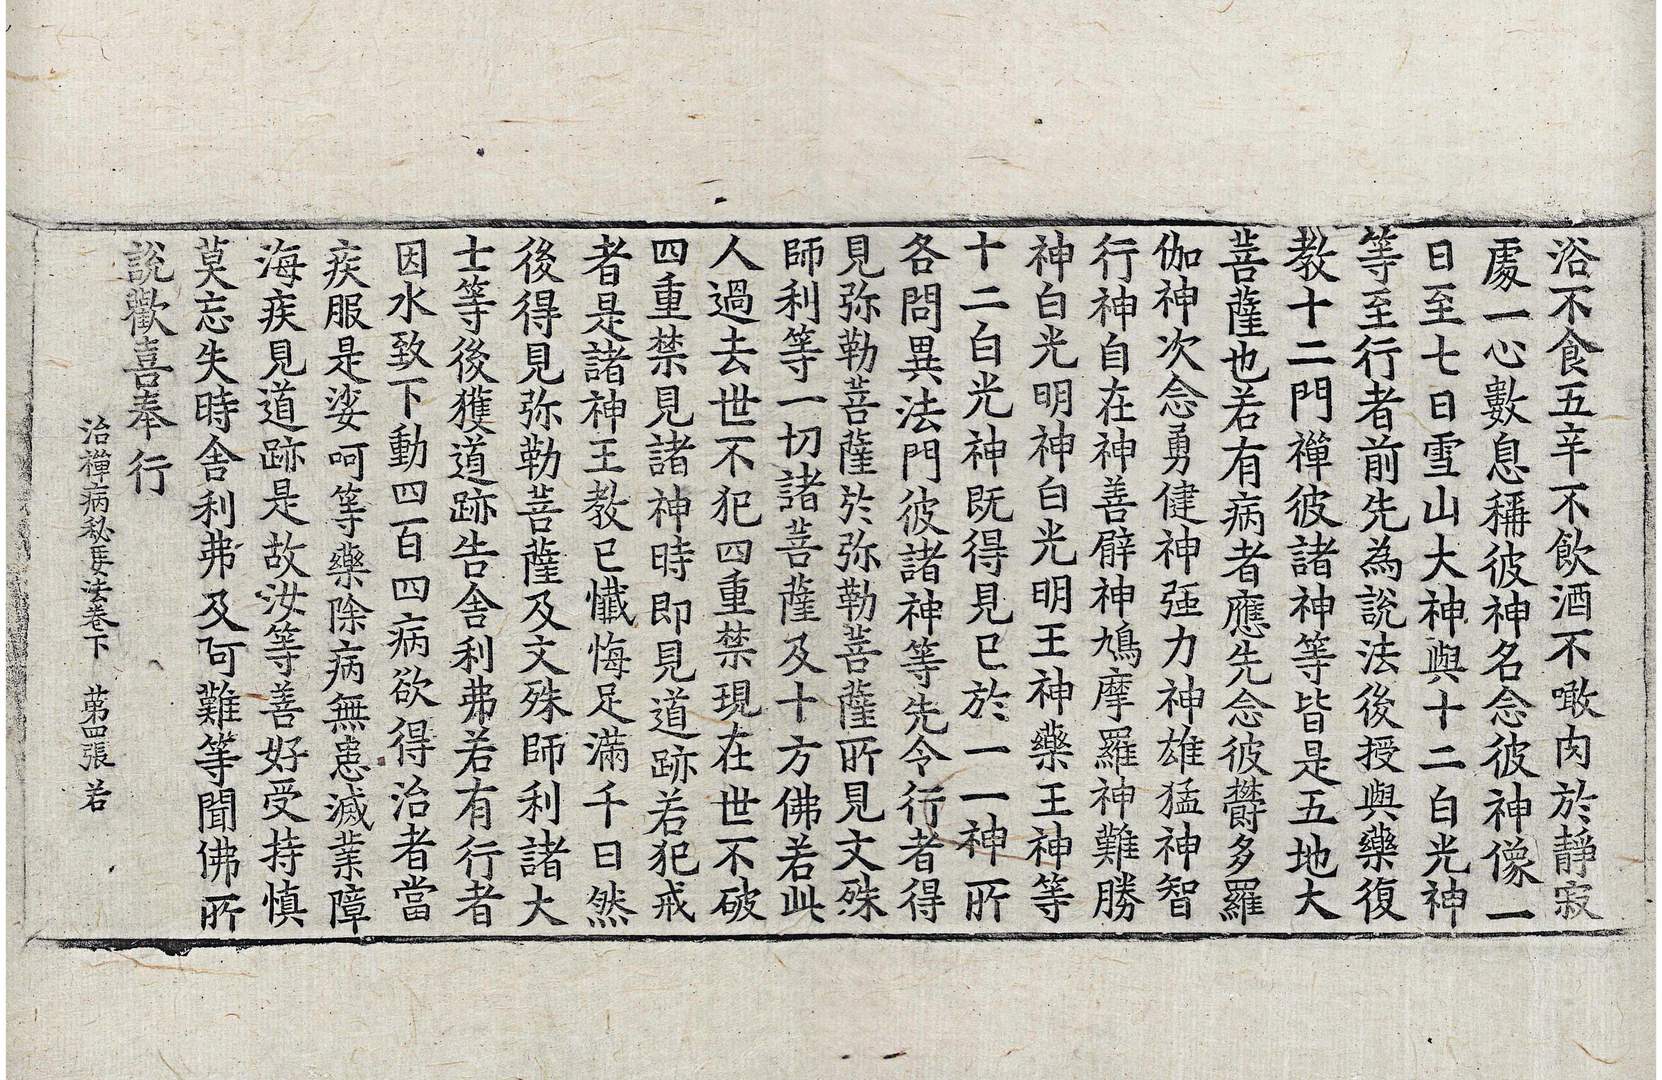 浴不食五辛不飲酒不噉肉於靜寂
處一心數息稱彼神名念彼神像一
日至七日雪山大神與十二白光神
等至行者前先為說法後授與藥復
教十二門禪彼諸神等皆是五地大
菩薩也若有病者應先念彼欝多羅
伽神次念勇健神强力神雄猛神智
行神自在神善臂神鳩摩羅神難勝
神白光明神白光明王神藥王神等
十二白光神旣得見已於一一神所
各問異法門彼諸神等先令行者得
見弥勒菩薩於弥勒菩薩所見文殊
師利等一切諸菩薩及十方佛若此
人過去世不犯四重禁現在世不破
四重禁見諸神時即見道跡若犯戒
者是諸神王教已懺悔足滿千日然
後得見弥勒菩薩及文殊師利諸大
士等後獲道跡告舍利弗若有行者
因水致下動四百四病欲得治者當
疾服是娑呵等藥除病無患滅業障
海疾見道跡是故汝等善好受持慎
莫忘失時舍利弗及阿難等聞佛所
說歡喜奉行
治禪病秘要法卷下　第四張　若